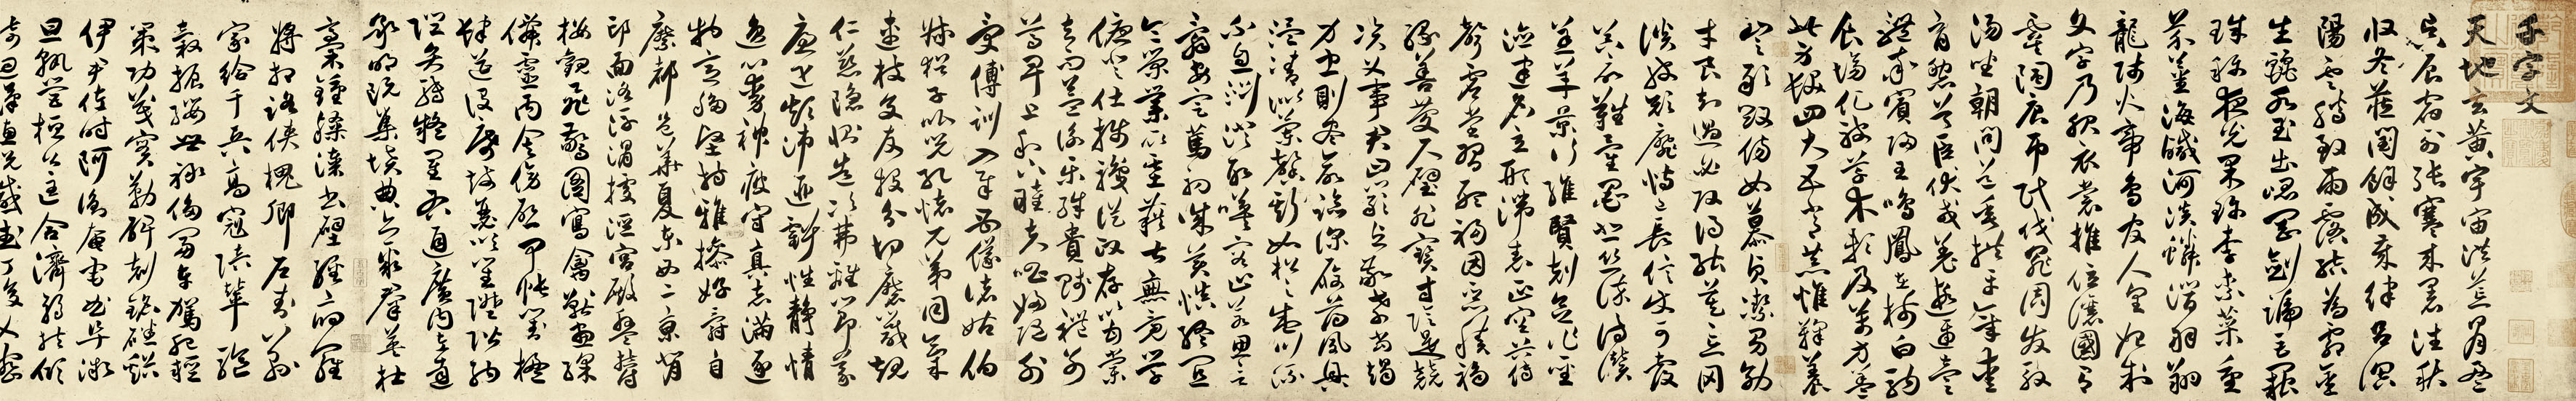 千字文
天地玄黃宇宙洪荒日月盈
昃辰宿列張寒來暑往秋
收冬藏閏餘成歲律呂調
陽雲騰致雨露結為霜金
生麗水玉出崑岡劍號巨闕
珠稱夜光果珍李柰菜重
芥薑海鹹河淡鱗潛羽翔
龍師火帝鳥官人皇始制
文字乃服衣裳推位讓國有
虞陶唐弔民伐罪周發殷
湯坐朝問道垂拱平章愛
育黎首臣伏戎羌遐邇壹
體率賓歸王鳴鳳在樹白駒
食場化被草木賴及萬方蓋
此身髮四大五常恭惟鞠養
豈敢毀傷女慕貞潔男効
才良知過必改得能莫忘罔
談彼短靡恃己長信使可覆
器欲難量墨悲絲染詩讚
羔羊景行維賢剋念作聖
德建名立形端表正空谷傳
聲虛堂習聽禍因惡積福
緣善慶尺璧非寶寸陰是競
資父事君曰嚴與敬孝當竭
力忠則盡命臨深履薄夙興
溫清似蘭斯馨如松之盛川流
不息淵澄取映容止若思言
辭安定篤初誠美慎終宜
令榮業所基籍甚無竟學
優登仕攝職從政存以甘棠
去而益詠樂殊貴賤禮別
尊卑上和下睦夫唱婦隨外
受傅訓入奉母儀諸姑伯
叔猶子比兒孔懷兄弟同氣
連枝交友投分切磨箴規
仁慈隱惻造次弗離節義
廉退顛沛匪虧性靜情
逸心動神疲守真志滿逐
物意移堅持雅操好爵自
縻都邑華夏東西二京背
邙面洛浮渭據涇宮殿盤鬱
樓觀飛驚圖寫禽獸畫綵
仙靈丙舍傍啟甲帳對楹
肆筵設席鼓瑟吹笙陞階納
陛弁轉疑星右通廣內左達
承明既集墳典亦聚群英杜
稾鍾隸漆書壁經府羅
將相路俠槐卿戶封八縣
家給千兵高冠陪輦驅
轂振纓世祿侈富車駕肥輕
策功茂實勒碑刻銘磻溪
伊尹佐時阿衡奄宅曲阜微
旦孰營桓公匡合濟弱扶傾
綺迴漢惠說感武丁俊乂密